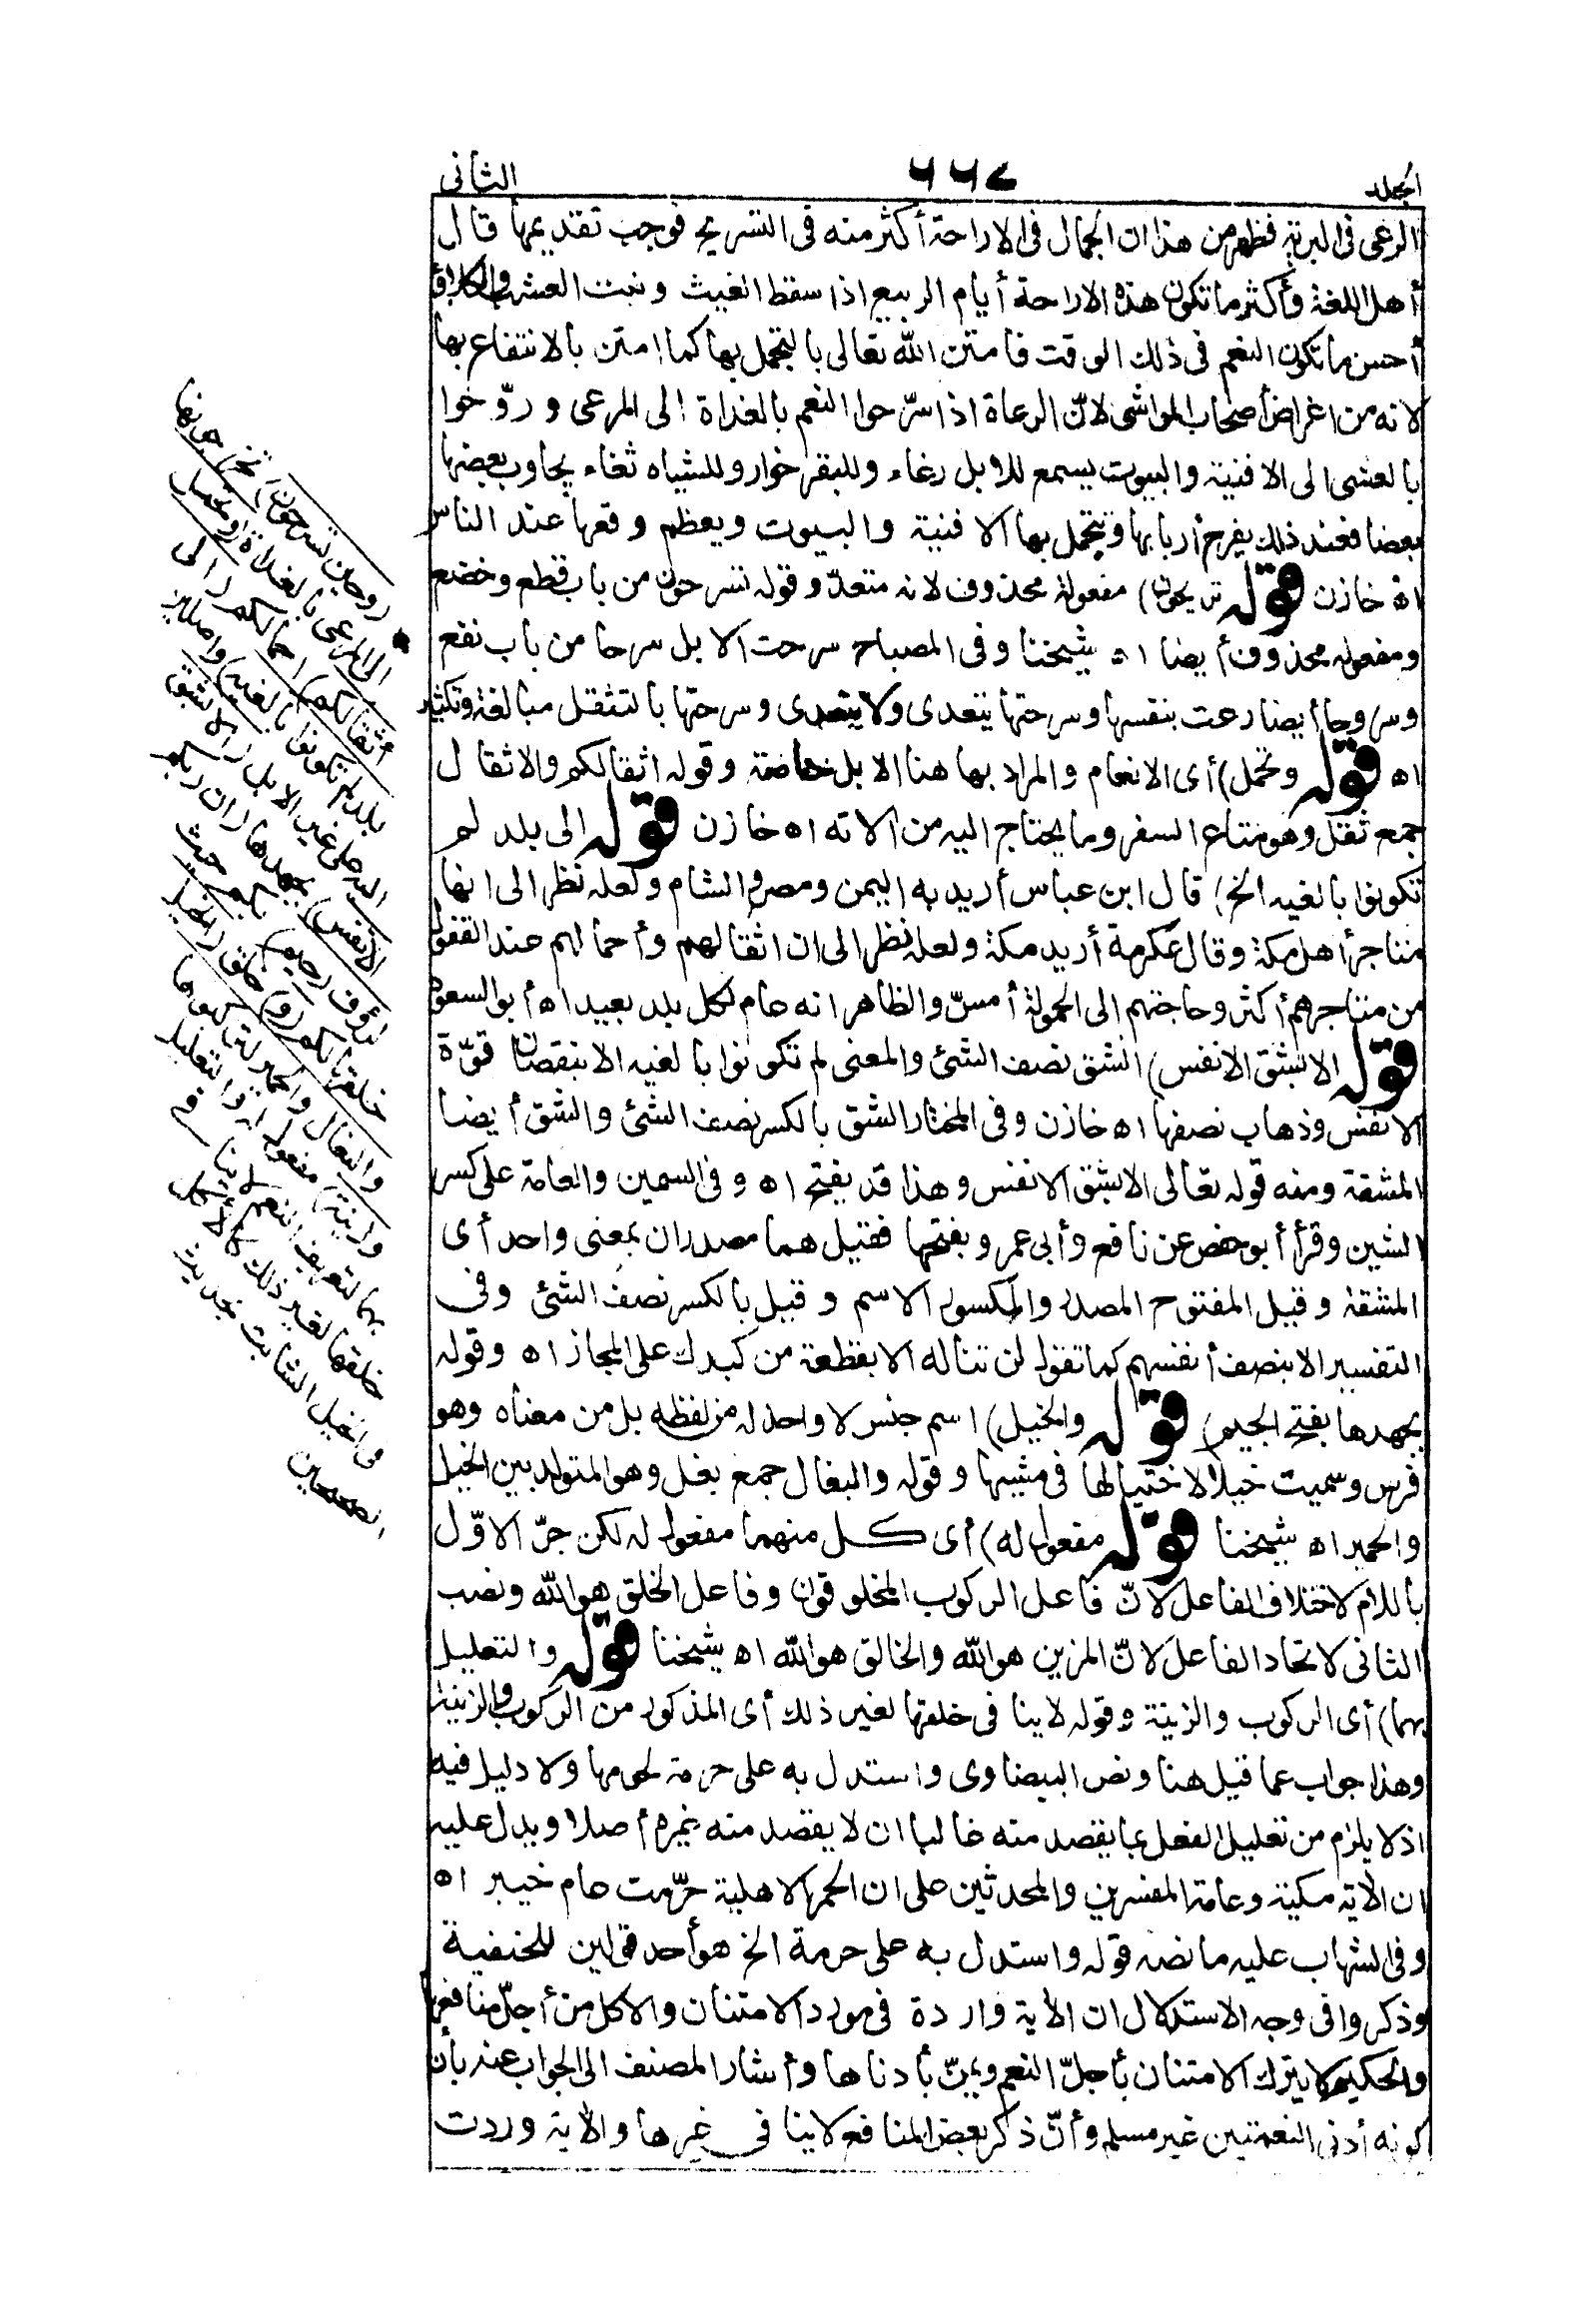 المجلد
٦٦٧
الثانى
الرعى فى البرية فظهر من هذا ان الجمال فى الاراحة أكثر منه فى التسريح فوجب تقديمها قال
أهل اللغة وأكثر ما تكون هذه الاراحة أيام الربيع اذا سقط الغيث ونبت العشب والكلأ و
أحسن ما تكون النعم فى ذلك الوقت فامتن الله تعالى بالتجمل بها كما امتن بالانتفاع بها
لانه من اغراض أصحاب المواشى لانّ الرعاة اذا سرّحوا النعم بالغداة الى المرعى وروّحوا
بالعشى الى الافنية والبيوت يسمع للابل رغاء وللبقر خوار وللشياه ثغاء يجاوب بعضها
بعضا فعند ذلك يفرح أربابها وتتجمل بها الافنية والبيوت ويعظم وقعها عند الناس
اه خازن قوله تريحون) مفعوله محذوف لانه متعدّ وقوله تسرحون من باب قطع وخضع
ومفعوله محذوف أيضا اه شيخنا وفى المصباح سرحت الابل سرحا من باب نفع
وسروحا أيضا رعت بنفسها وسرحتها يتعدى ولا يتعدى وسرحتها بالتثقل مبالغة وتكثير
اه قوله وتحمل) أى الانعام والمراد بها هنا الابل خاصة وقوله اثقالكم والاثقال
جمع ثقل وهو متاع السفر وما يحتاج اليه من الاته اه خازن قوله الى بلد لم
تكونوا بالغيه الخ) قال ابن عباس أريد به اليمن ومصر والشام ولعله نظر الى انها
متاجر أهل مكة وقال عكرمة أريد مكة ولعله نظر الى ان اثقالهم وأحمالهم عند القفول
من متاجرهم أكثر وحاجتهم الى الحمولة أمسّ والظاهر انه عام لكل بلد بعيد اه أبو السعود
قوله الا بشق الانفس) الشق نصف الشئ والمعنى لم تكونوا بالغيه الا بنقصان قوّة
الانفس وذهاب نصفها اه خازن وفى المختار الشق بالكسر نصف الشئ والشق أيضا
المشقة ومنه قوله تعالى الا بشق الانفس وهذا قد يفتح اه وفى السمين والعامة على كسر
الشين وقرأ أبو جعفر عن نافع وأبى عمر وبفتحها فقيل هما مصدران بمعنى واحد أى
المشقة وقيل المفتوح المصدر والمكسور الاسم وقيل بالكسر نصف الشئ وفى
التفسير الا بنصف أنفسهم كما تقول لن تناله الا بقطعة من كبدك على المجاز اه وقوله
بجهدها بفتح الجيم) قوله والخيل) اسم جنس لا واحد له من لفظه بل من معناه وهو
فرس وسميت خيلا لاختيالها فى مشيها وقوله والبغال جمع بغل وهو المتولد بين الخيل
والحمير اه شيخنا قوله مفعول له) أى كل منهما مفعول له لكن جرّ الاوّل
باللام لاختلاف الفاعل لانّ فاعل الركوب المخلوقون وفاعل الخلق هو الله ونصب
الثانى لاتحاد الفاعل لانّ المزين هو الله والخالق هو الله اه شيخنا قوله والتعليل
بهما) أى الركوب والزينة وقوله لا ينا فى خلقها لغير ذلك أى المذكور من الركوب والزينة
وهذا جواب عما قيل هنا ونص البيضاوى واستدل به على حرمة لحومها ولا دليل فيه
اذ لا يلزم من تعليل الفعل بما يقصد منه غالبا ان لا يقصد منه غيره أصلا ويدل عليه
ان الأية مكية وعامة المفسرين والمحدثين على ان الحمر الاهلية حرّمت عام خيبر اه
وفى الشهاب عليه ما نصه قوله واستدل به على حرمة الخ هو أحد قولين للحنفية
وذكروا فى وجه الاستدلال ان الأية واردة فى مورد الامتنان والاكل من أجلّ منافعها
والحكيم لا يترك الامتنان بأجلّ النعم ويمنّ بأدناها وأشار المصنف الى الجواب عنه بأن
كونه أدنى النعمتين غير مسلم وأنّ ذكر بعض المنافع لا ينا فى غيرها والأية وردت
(وحين تسرحون) تخرجونها
الى المرعى بالغداة (وتحمل
أثقالكم) احمالكم (الى
بلد لم تكونوا بالغيه) واصلين
اليه على غير الابل (الا بشق
الانفس) بجهدها (ان ربكم
لرؤف رحيم) بكم حيث
خلقها لكم (و) خلق (الخيل
والبغال والحمير لتركبوها
وزينة) مفعول له والتعليل
بهما لتعريف النعم لا ينا فى
خلقها لغير ذلك كالاكل
فى الخيل الثابت بحديث
الصحيحين